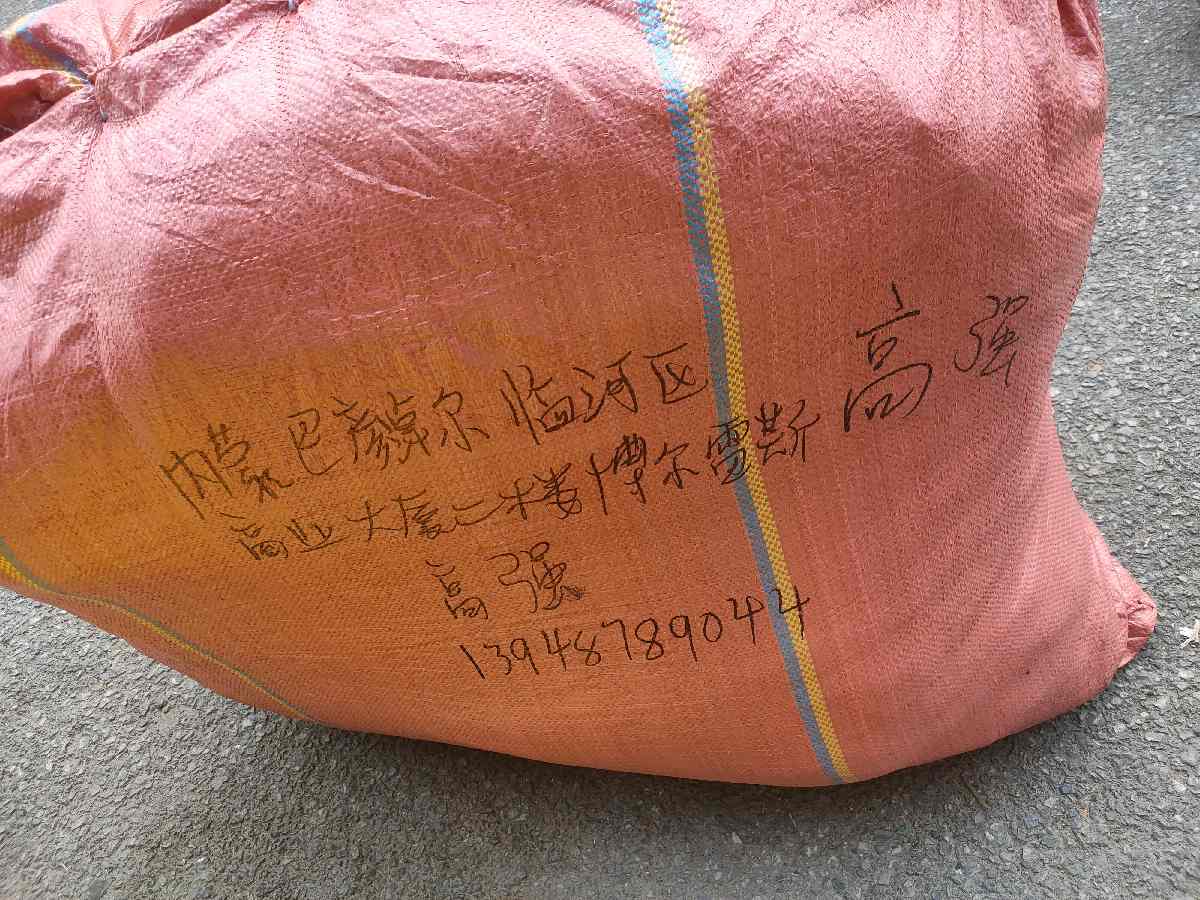 内蒙巴彦淖尔临河区
商业大厦二楼博尔雷斯
高强
13948789044
高强